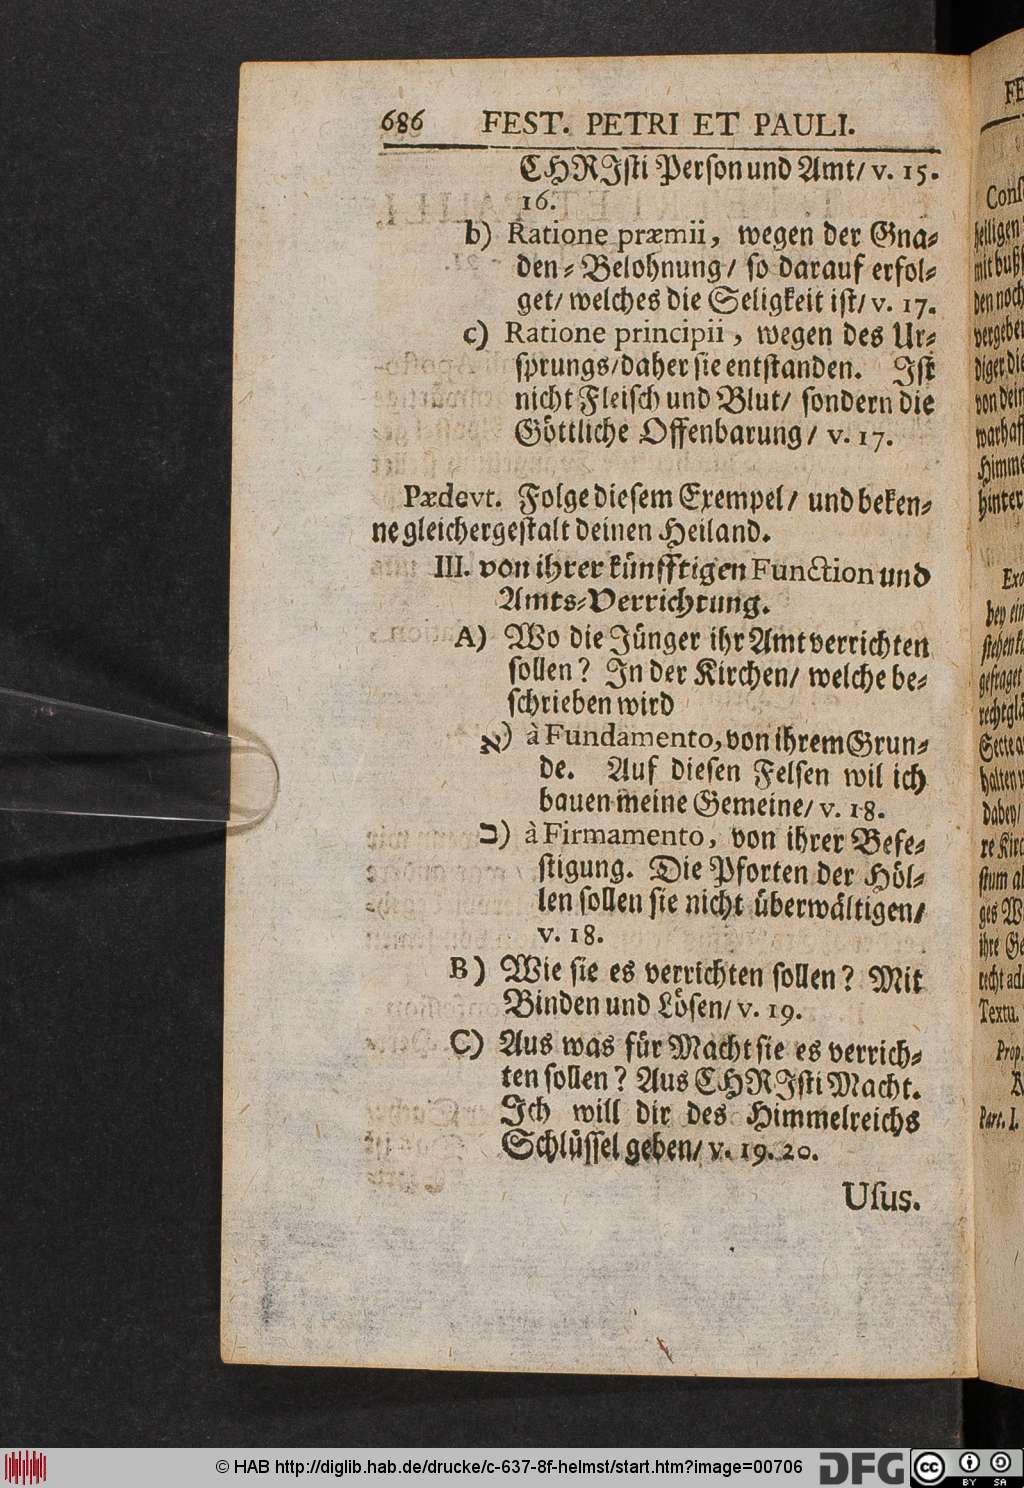 686 FEST. PETRI ET PAULI.
CHRIſti Perſon und Amt/ v. 15.
16.
b) Ratione præmii, wegen der Gna⸗
den⸗Belohnung/ ſo darauf erfol⸗
get/ welches die Seligkeit iſt/ v. 17.
c) Ratione principii, wegen des Ur⸗
ſprungs/ daher ſie entſtanden. Iſt
nicht Fleiſch und Blut/ ſondern die
Göttliche Offenbarung/ v. 17.
Pædevt. Folge dieſem Exempel/ und beken⸗
ne gleichergeſtalt deinen Heiland.
III. von ihrer künfftigen Function und
Amts⸗Verrichtung.
A) Wo die Jünger ihr Amt verrichten
ſollen? In der Kirchen/ welche be⸗
ſchrieben wird
א) à Fundamento, von ihrem Grun⸗
de. Auf dieſen Felſen wil ich
bauen meine Gemeine/ v. 18.
ב) à Firmamento, von ihrer Befe⸗
ſtigung. Die Pforten der Höl⸗
len ſollen ſie nicht überwältigen/
v. 18.
B) Wie ſie es verrichten ſollen? Mit
Binden und Löſen/ v. 19.
C) Aus was für Macht ſie es verrich⸗
ten ſollen? Aus CHRIſti Macht.
Ich will dir des Himmelreichs
Schlüſſel geben/ v. 19. 20.
Uſus.
FE
Conſ
heiligen
mit buß
den noch
vergeben
diger, die
von dein
warhaf
Himme
hinter
Exo
bey ein
ſtehen
gefraget
rechtglä
Secte
halten
dabey/
re Kirc
ſtum al
ges W
ihre Ge
recht ad
Textu.
Prop.
Part. I.
© HAB http://diglib.hab.de/drucke/c-637-8f-helmst/start.htm?image=00706
DFG
cc BY SA